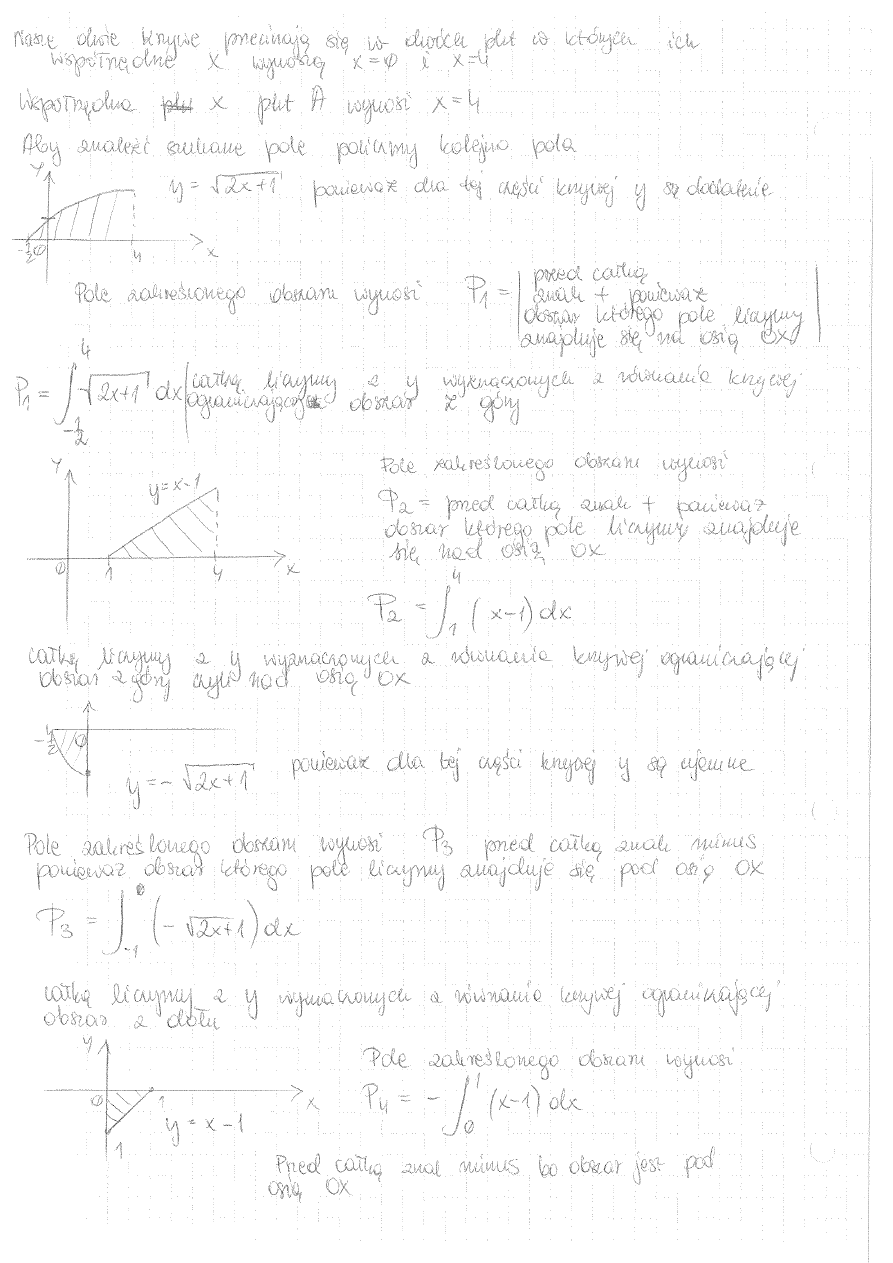 Nasze dwie krzywe przecinają się w dwóch pkt w których ich
współrzędne x wynoszą x=0 i x=4
Współrzędna x pkt A wynosi x=4
Aby znaleźć szukane pole policzmy kolejno pola
y
y = √2x+1 ponieważ dla tej części krzywej y są dodatnie
-1/2 0 4 x
Pole zakreślonego obszaru wynosi P₁ = | przed całką
znak + ponieważ
obszar którego pole liczymy
znajduje się na osią OX |
P₁ = ∫_{-1/2}^{4} √2x+1 dx | całką liczymy z y wyznaczonych z równania krzywej
ograniczającej obszar z góry
y
y=x-1
0 1 4 x
Pole zakreślonego obszaru wynosi
P₂ = przed całką znak + ponieważ
obszar którego pole liczymy znajduje
się nad osią OX
P₂ = ∫_{1}^{4} (x-1) dx
całką liczymy z y wyznaczonych z równania krzywej ograniczającej
obszar z góry czyli nad osią OX
-1/2 0
y = -√2x+1 ponieważ dla tej części krzywej y są ujemne
Pole zakreślonego obszaru wynosi P₃ przed całką znak minus
ponieważ obszar którego pole liczymy znajduje się pod osią OX
P₃ = ∫_{-1}^{0} (-√2x+1) dx
całką liczymy z y wyznaczonych z równania krzywej ograniczającej
obszar z dołu
y
0 1 x
y = x-1
1
Pole zakreślonego obszaru wynosi
P₄ = -∫_{0}^{1} (x-1) dx
Przed całką znak minus bo obszar jest pod
osią OX